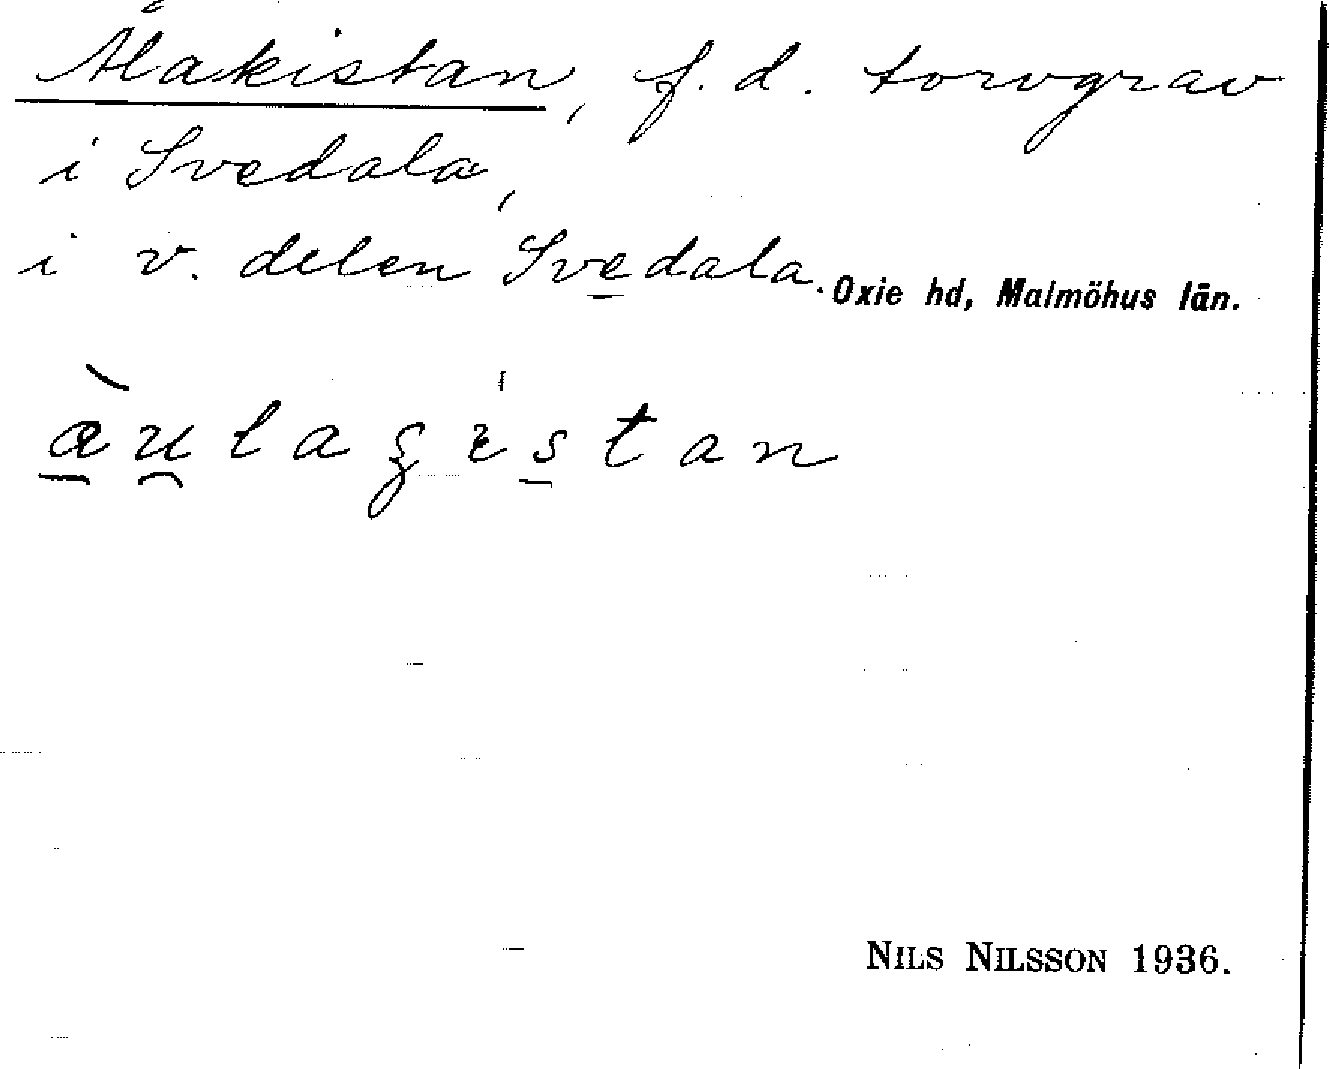 Ålakistan, f. d. torvgrav
i Svedala,
i v. delen Svedala. Oxie hd, Malmöhus län.
æ̠̀u̯laɡis̠tan
NILS NILSSON 1936.